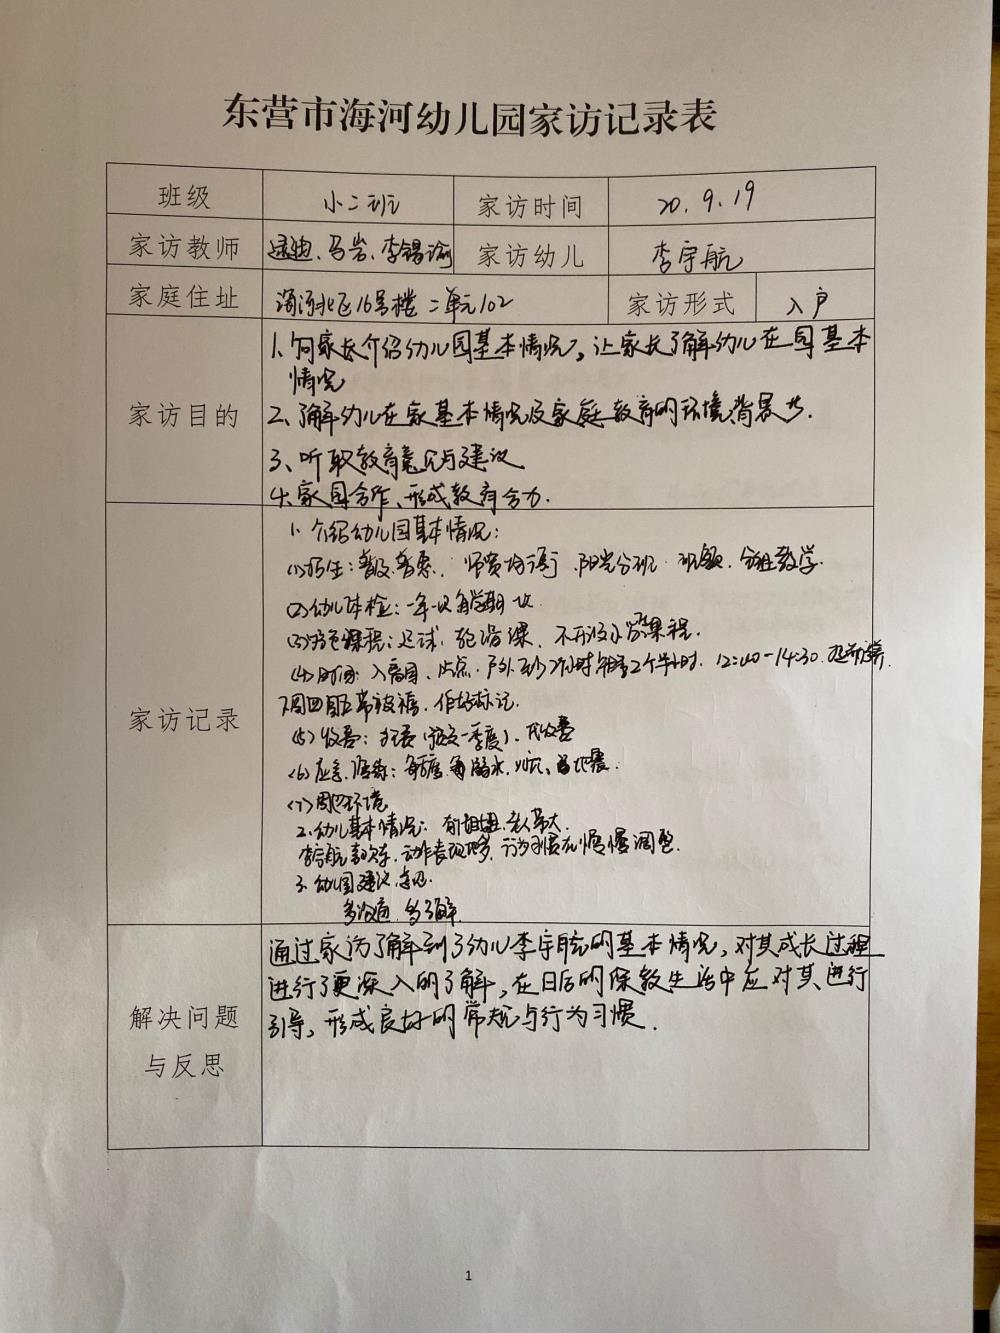 东营市海河幼儿园家访记录表
班级 小二班 家访时间 20.9.19
家访教师 马岩、李锡谕 家访幼儿 李宇航
家庭住址 海河北区16号楼二单元102 家访形式 入户
家访目的
1、向家长介绍幼儿园基本情况,让家长了解幼儿在园基本
情况
2、了解幼儿在家基本情况及家庭教育的环境背景
3、听取教育意见与建议
4、家园合作、形成教育合力.
家访记录
1、介绍幼儿园基本情况:
(1)招生:普及、普惠、师资均衡 阳光分班 班额
(2)幼儿体检:一年一次 每学期一次
(3)特色课程:足球、轮滑课、不开设小学课程.
(4)时间:入离园、户外至少2小时 午睡2个半小时. 12:00-14:30.
周五带被褥.作好标记.
(5)收费:
(6)应急演练:
(7)周边环境
2、幼儿基本情况:有姐姐、老人带大.
李宇航喜欢车,动作表现多,行为习惯在慢慢调整.
3、幼儿园建议
多沟通,多了解.
解决问题
与反思
通过家访了解到了幼儿李宇航的基本情况,对其成长过程
进行了更深入的了解,在日后的保教生活中应对其进行
引导,形成良好的常规与行为习惯.
1